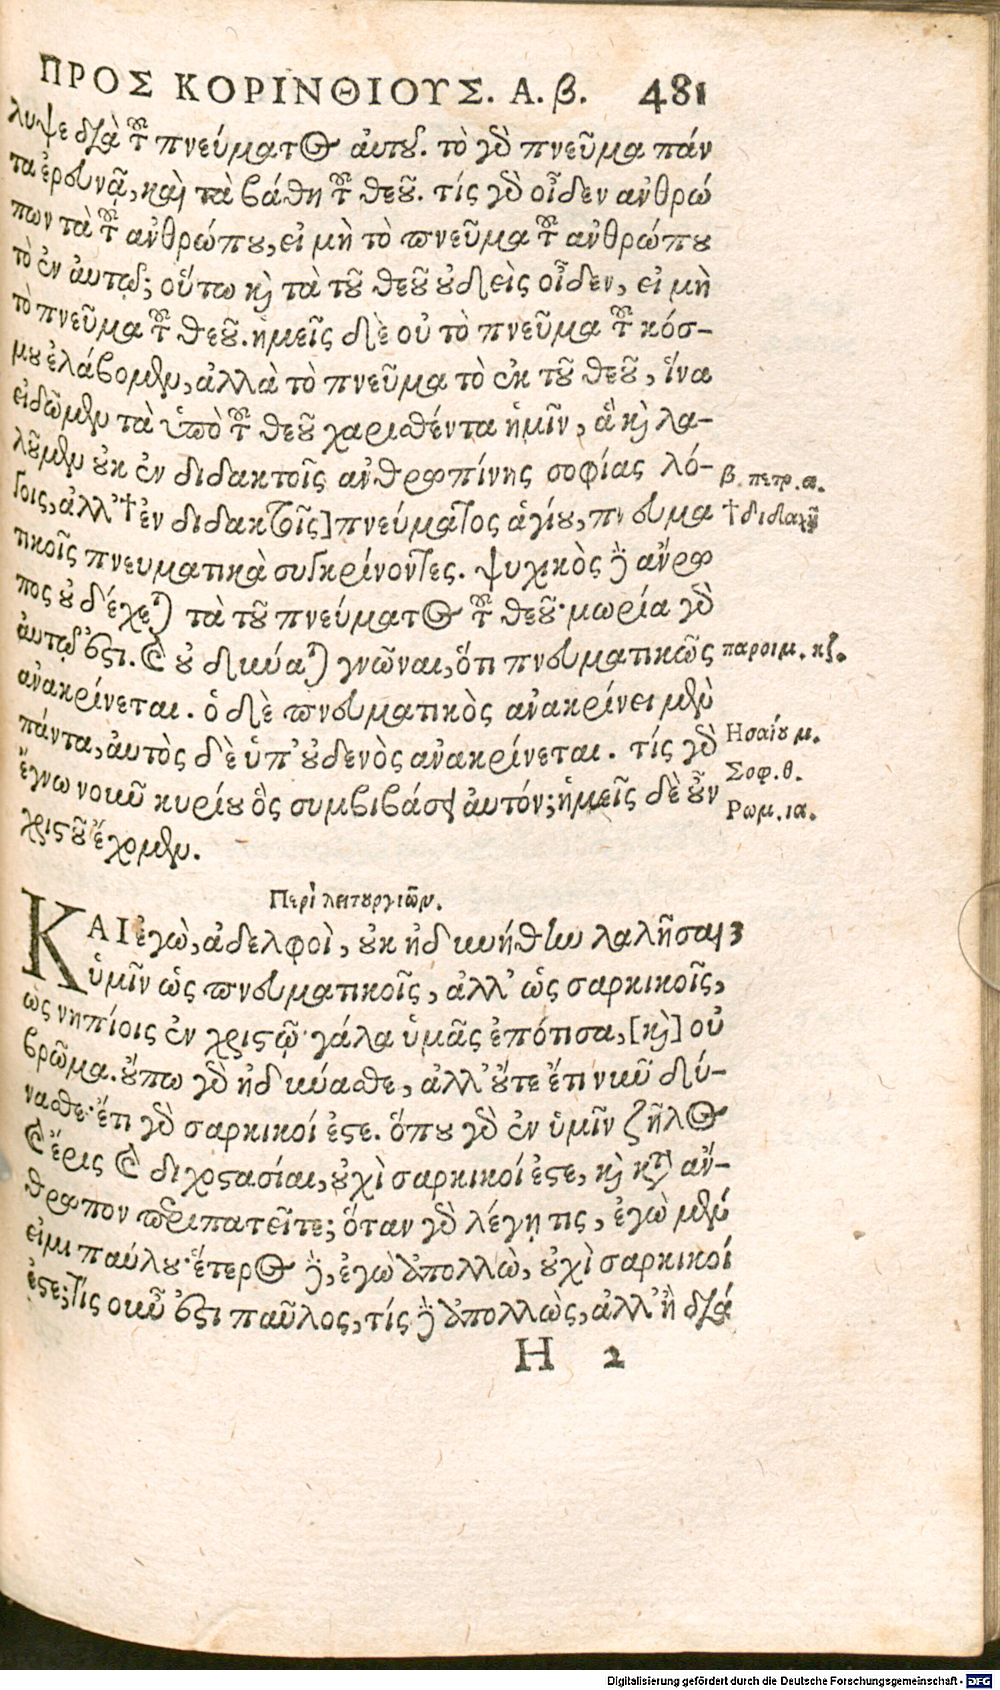 ΠΡΟΣ ΚΟΡΙΝΘΙΟΥΣ. Α. β. 481
λυψε διὰ τοῦ πνεύματος αὐτοῦ. τὸ γὰρ πνεῦμα πάν
τα ἐρευνᾷ, καὶ τὰ βάθη τοῦ θεοῦ. τίς γὰρ οἶδεν ἀνθρώ
πων τὰ τοῦ ἀνθρώπου, εἰ μὴ τὸ πνεῦμα τοῦ ἀνθρώπου
τὸ ἐν αὐτῷ; οὕτω καὶ τὰ τοῦ θεοῦ οὐδεὶς οἶδεν, εἰ μὴ
τὸ πνεῦμα τοῦ θεοῦ. ἡμεῖς δὲ οὐ τὸ πνεῦμα τοῦ κόσ-
μου ἐλάβομεν, ἀλλὰ τὸ πνεῦμα τὸ ἐκ τοῦ θεοῦ, ἵνα
εἰδῶμεν τὰ ὑπὸ τοῦ θεοῦ χαρισθέντα ἡμῖν, ἃ καὶ λα-
λοῦμεν οὐκ ἐν διδακτοῖς ἀνθρωπίνης σοφίας λό-
γοις, ἀλλ' † ἐν διδακτοῖς] πνεύματος ἁγίου, πνευμα
τικοῖς πνευματικὰ συγκρίνοντες. ψυχικὸς δὲ ἄνθρω
πος οὐ δέχεται τὰ τοῦ πνεύματος τοῦ θεοῦ· μωρία γὰρ
αὐτῷ ἐστι. καὶ οὐ δύναται γνῶναι, ὅτι πνευματικῶς
ἀνακρίνεται. ὁ δὲ πνευματικὸς ἀνακρίνει μὲν
πάντα, αὐτὸς δὲ ὑπ' οὐδενὸς ἀνακρίνεται. τίς γὰρ
ἔγνω νοῦν κυρίου ὃς συμβιβάσει αὐτόν; ἡμεῖς δὲ νοῦν
χριστοῦ ἔχομεν.
β. πετρ. α.
† διδαχῇ
παροιμ. κζ.
Ησαίου μ.
Σοφ. θ.
Ρωμ. ια.
Περὶ λειτουργιῶν.
ΚΑΙ ἐγὼ, ἀδελφοὶ, οὐκ ἠδυνήθην λαλῆσαι 3
ὑμῖν ὡς πνευματικοῖς, ἀλλ' ὡς σαρκικοῖς,
ὡς νηπίοις ἐν χριστῷ· γάλα ὑμᾶς ἐπότισα, [καὶ] οὐ
βρῶμα. οὔπω γὰρ ἠδύνασθε, ἀλλ' οὔτε ἔτι νῦν δύ-
νασθε· ἔτι γὰρ σαρκικοί ἐστε. ὅπου γὰρ ἐν ὑμῖν ζῆλος
καὶ ἔρις καὶ διχοστασίαι, οὐχὶ σαρκικοί ἐστε, καὶ κατὰ ἄν-
θρωπον περιπατεῖτε; ὅταν γὰρ λέγῃ τις, ἐγὼ μέν
εἰμι παύλου· ἕτερος δὲ, ἐγὼ ἀπολλὼ, οὐχὶ σαρκικοί
ἐστε; τίς οὖν ἐστι παῦλος, τίς δὲ ἀπολλὼς, ἀλλ' ἢ διά
Η 2
Digitalisierung gefördert durch die Deutsche Forschungsgemeinschaft - DFG